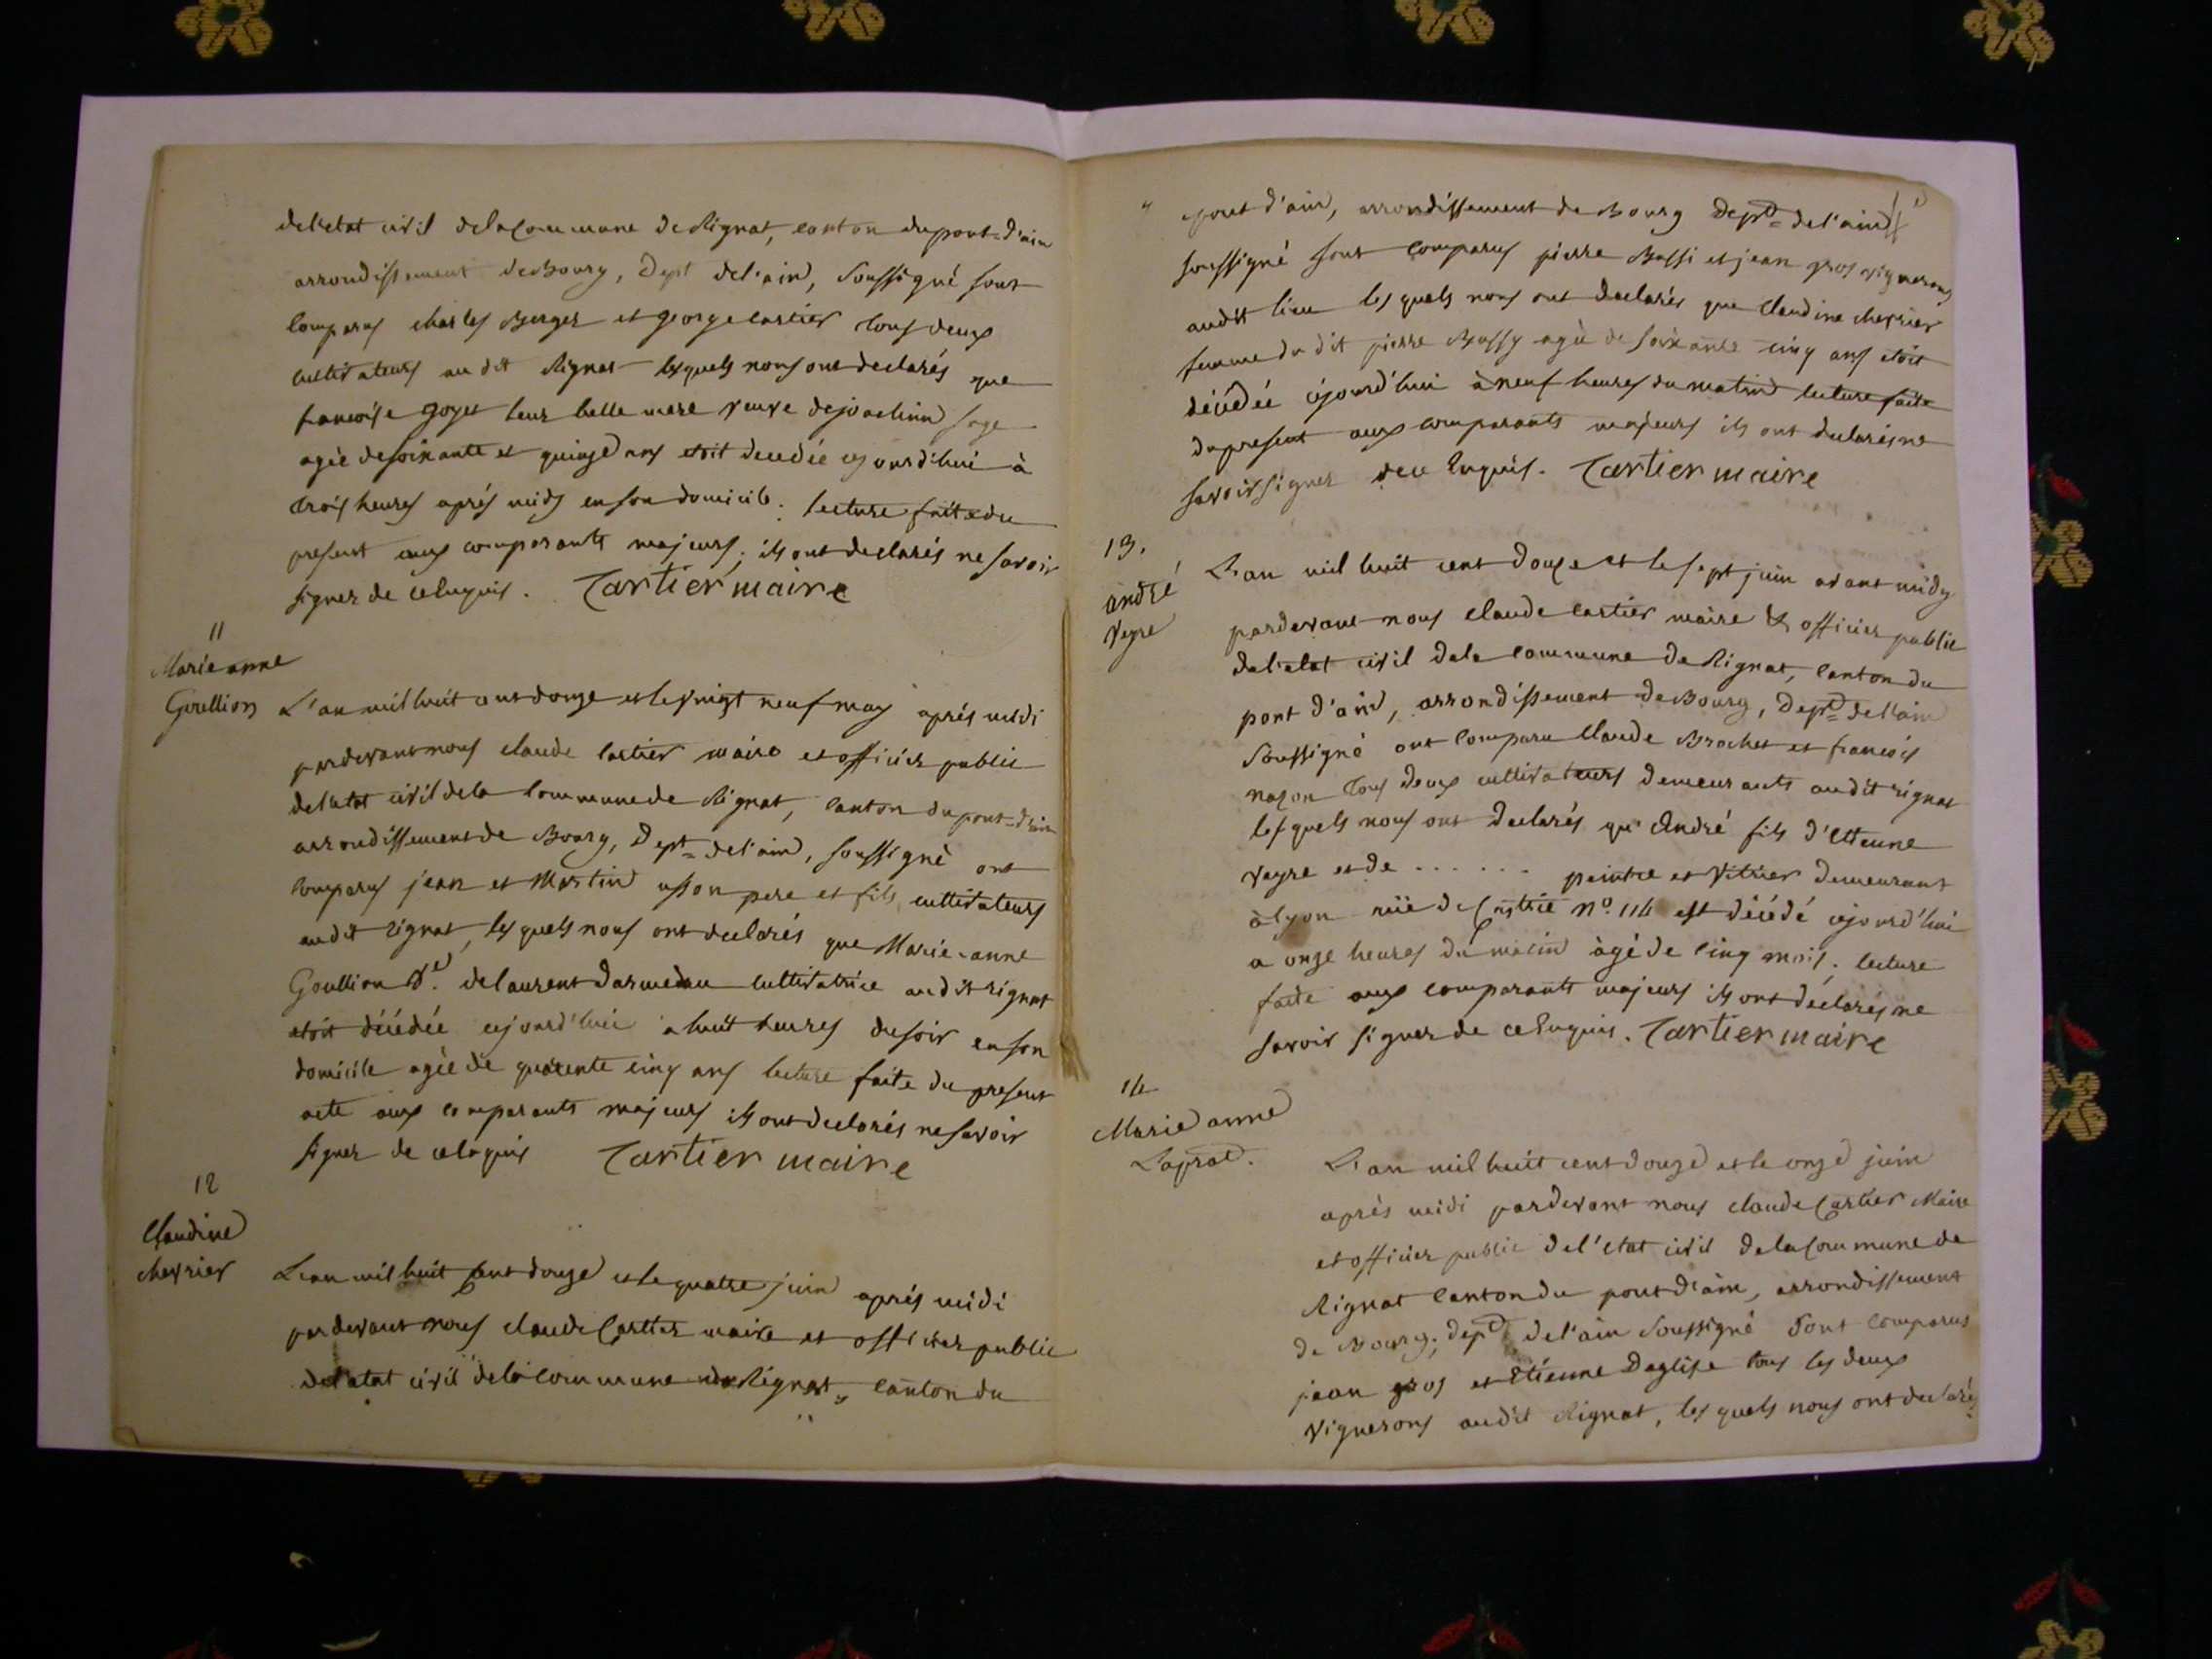 de l'etat civil de la Commune de Rignat, canton du pont-d'ain
arrondissement de Bourg, Dept de l'ain, Soussigné sont
Comparus charles Berger et george cartier tous deux
cultivateurs au dit Rignat lesquels nous ont declarés que
francoise goyet leur belle mere veuve de joachim sage
agée de soixante et quinze ans etoit decedée cejourd'hui à
trois heures aprés midy en son domicile. lecture faite du
present aux comparants majeurs, ils ont declarés ne savoir
signer de ce Enquis. Cartier maire
11
Marie anne
Goullion
L'an mil huit cent douze et le vingt neuf may aprés midi
pardevant nous claude Cartier maire et officier public
de l'etat civil de la Commune de Rignat, canton du pont-d'ain
arrondissement de Bourg, Dept de l'ain, soussigné ont
Comparus jean et Martin usson pere et fils cultivateurs
audit rignat, lesquels nous ont declarés que Marie-anne
Goullion Ve. de laurent darmedau cultivatrice audit rignat
etoit décédée cejourd'hui a huit heures du soir en son
domicile agée de quarente cinq ans lecture faite du present
acte aux comparants majeurs ils ont declarés ne savoir
signer de ce enquis Cartier maire
12
Claudine
chevrier
L'an mil huit Cent douze et le quatre juin aprés midi
pardevant nous claude Cartier maire et officier public
de l'etat civil de la commune de Rignat, canton du
"
" pont d'ain, arrondissement de Bourg Dept de l'ain
soussigné sont comparus pierre Bussi et jean gros vignerons
audit lieu lesquels nous ont declarés que Claudine chevrier
femme du dit pierre Bussy agée de soixante cinq ans etoit
décédée cejourd'hui à neuf heures du matin lecture faite
du present aux comparants majeurs ils ont declarés ne
savoir signer de ce Enquis. Cartier maire
13.
andré
Veyre
L'an mil huit cent douze et le sept juin avant midy
pardevant nous Claude cartier maire & officier public
de l'etat civil de la commune de Rignat, Canton du
pont d'ain, arrondissement de Bourg, Dept de l'ain
Soussigné ont Comparu Claude Brochet et francois
nason tous deux cultivateurs demeurants audit rignat
lesquels nous ont declarés qu'André fils d'Etienne
veyre et de ...... peintre et Vitrier demeurant
à lyon rüe de n.º 114 est décédé cejourd'hui
a onze heures du matin àgé de cinq mois. lecture
faite aux comparants majeurs ils ont déclarés ne
savoir signer de ce Enquis. Cartier maire
14
Marie anne
Laprat.
L'an mil huit cent douze et le onze juin
après midi pardevant nous claude Cartier Maire
et officier public de l'etat civil de la Commune de
Rignat Canton du pont d'ain, arrondissement
de Bourg; dept de l'ain Soussigné Sont Comparus
jean gros et Etienne Deglise tous les deux
vignerons audit Rignat, lesquels nous ont declarés